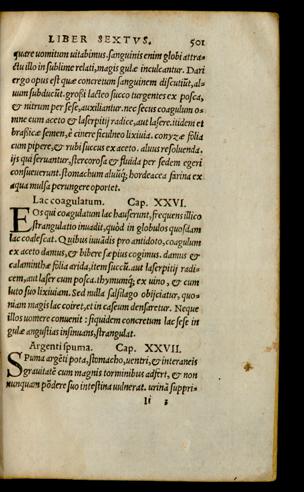 LIBER SEXTVS. 501
quare uomitum uitabimus. sanguinis enim globi attra-
ctu illo in sublime relati, magis gulæ inculcantur. Dari
ergo opus est quæ concretum sanguinem discutiũt, al-
uum subducũt. grossi lacteo succo turgentes ex posca,
& nitrum per sese, auxiliantur. nec secus coagulum o-
mne cum aceto & laserpitij radice, aut lasere. itidem et
brasicæ semen, è cinere ficulneo lixiuia. conyzæ folia
cum pipere, & rubi succus ex aceto. aluus resoluenda.
ijs qui seruantur, stercorosa & fluida per sedem egeri
consueuerunt. stomachum aluũq; hordeacea farina ex
aqua mulsa perungere oportet.
Lac coagulatum. Cap. XXVI.
Eos qui coagulatum lac hauserunt, frequens illico
strangulatio inuadit, quòd in globulos quosdam
lac coalescat. Quibus iuuãdis pro antidoto, coagulum
ex aceto damus, & bibere sæpius cogimus. damus &
calaminthæ folia arida, item succũ. aut laserpitij radi-
cem, aut laser cum posca. thymumq; ex uino, & cum
luto suo lixiuiam. Sed nulla salsilago obijciatur, quo-
niam magis lac coiret, et in caseum densaretur. Neque
illos uomere conuenit: siquidem concretum lac sese in
gulæ angustias insinuans, strangulat.
Argenti spuma. Cap. XXVII.
Spuma argẽti pota, stomacho, uentri, & interaneis
grauitatẽ cum magnis torminibus adfert, & non
nunquam põdere suo intestina uulnerat. urinã suppri-
Ii 3